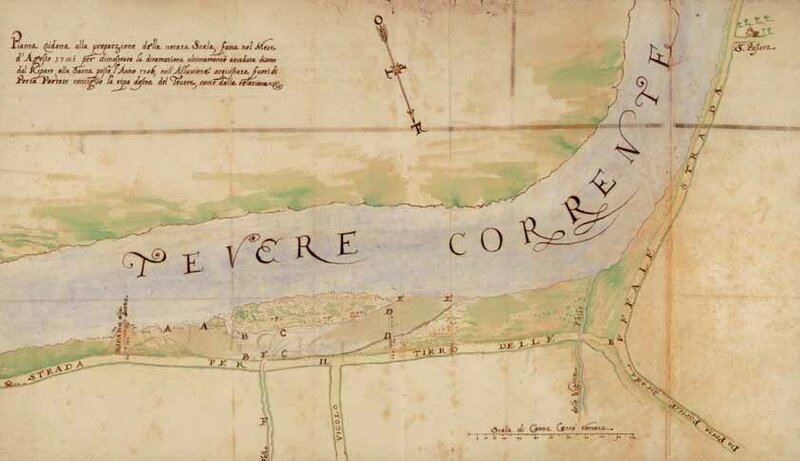 Pianta ridotta alla proporzione della notata Scala, fatta nel Mese
d'Agosto 1721 per dimostrare le diramazioni ultimamente accadute dietro
dal Riparo alla Barca posto l'Anno 1706, nell'Alluvione acquistata fuori di
Porta Portese contiguo la ripa destra del Tevere, come dalla relazione
S. Passera
O
T
TEVERE CORRENTE
STRADA
A A B C D E E
B C D
STRADA PER IL TIRRO DELLE BUFFALE
VICOLO
Fosso
delle Vigne
Da Porta Portese Strada
Scala di Canne Cento Romane